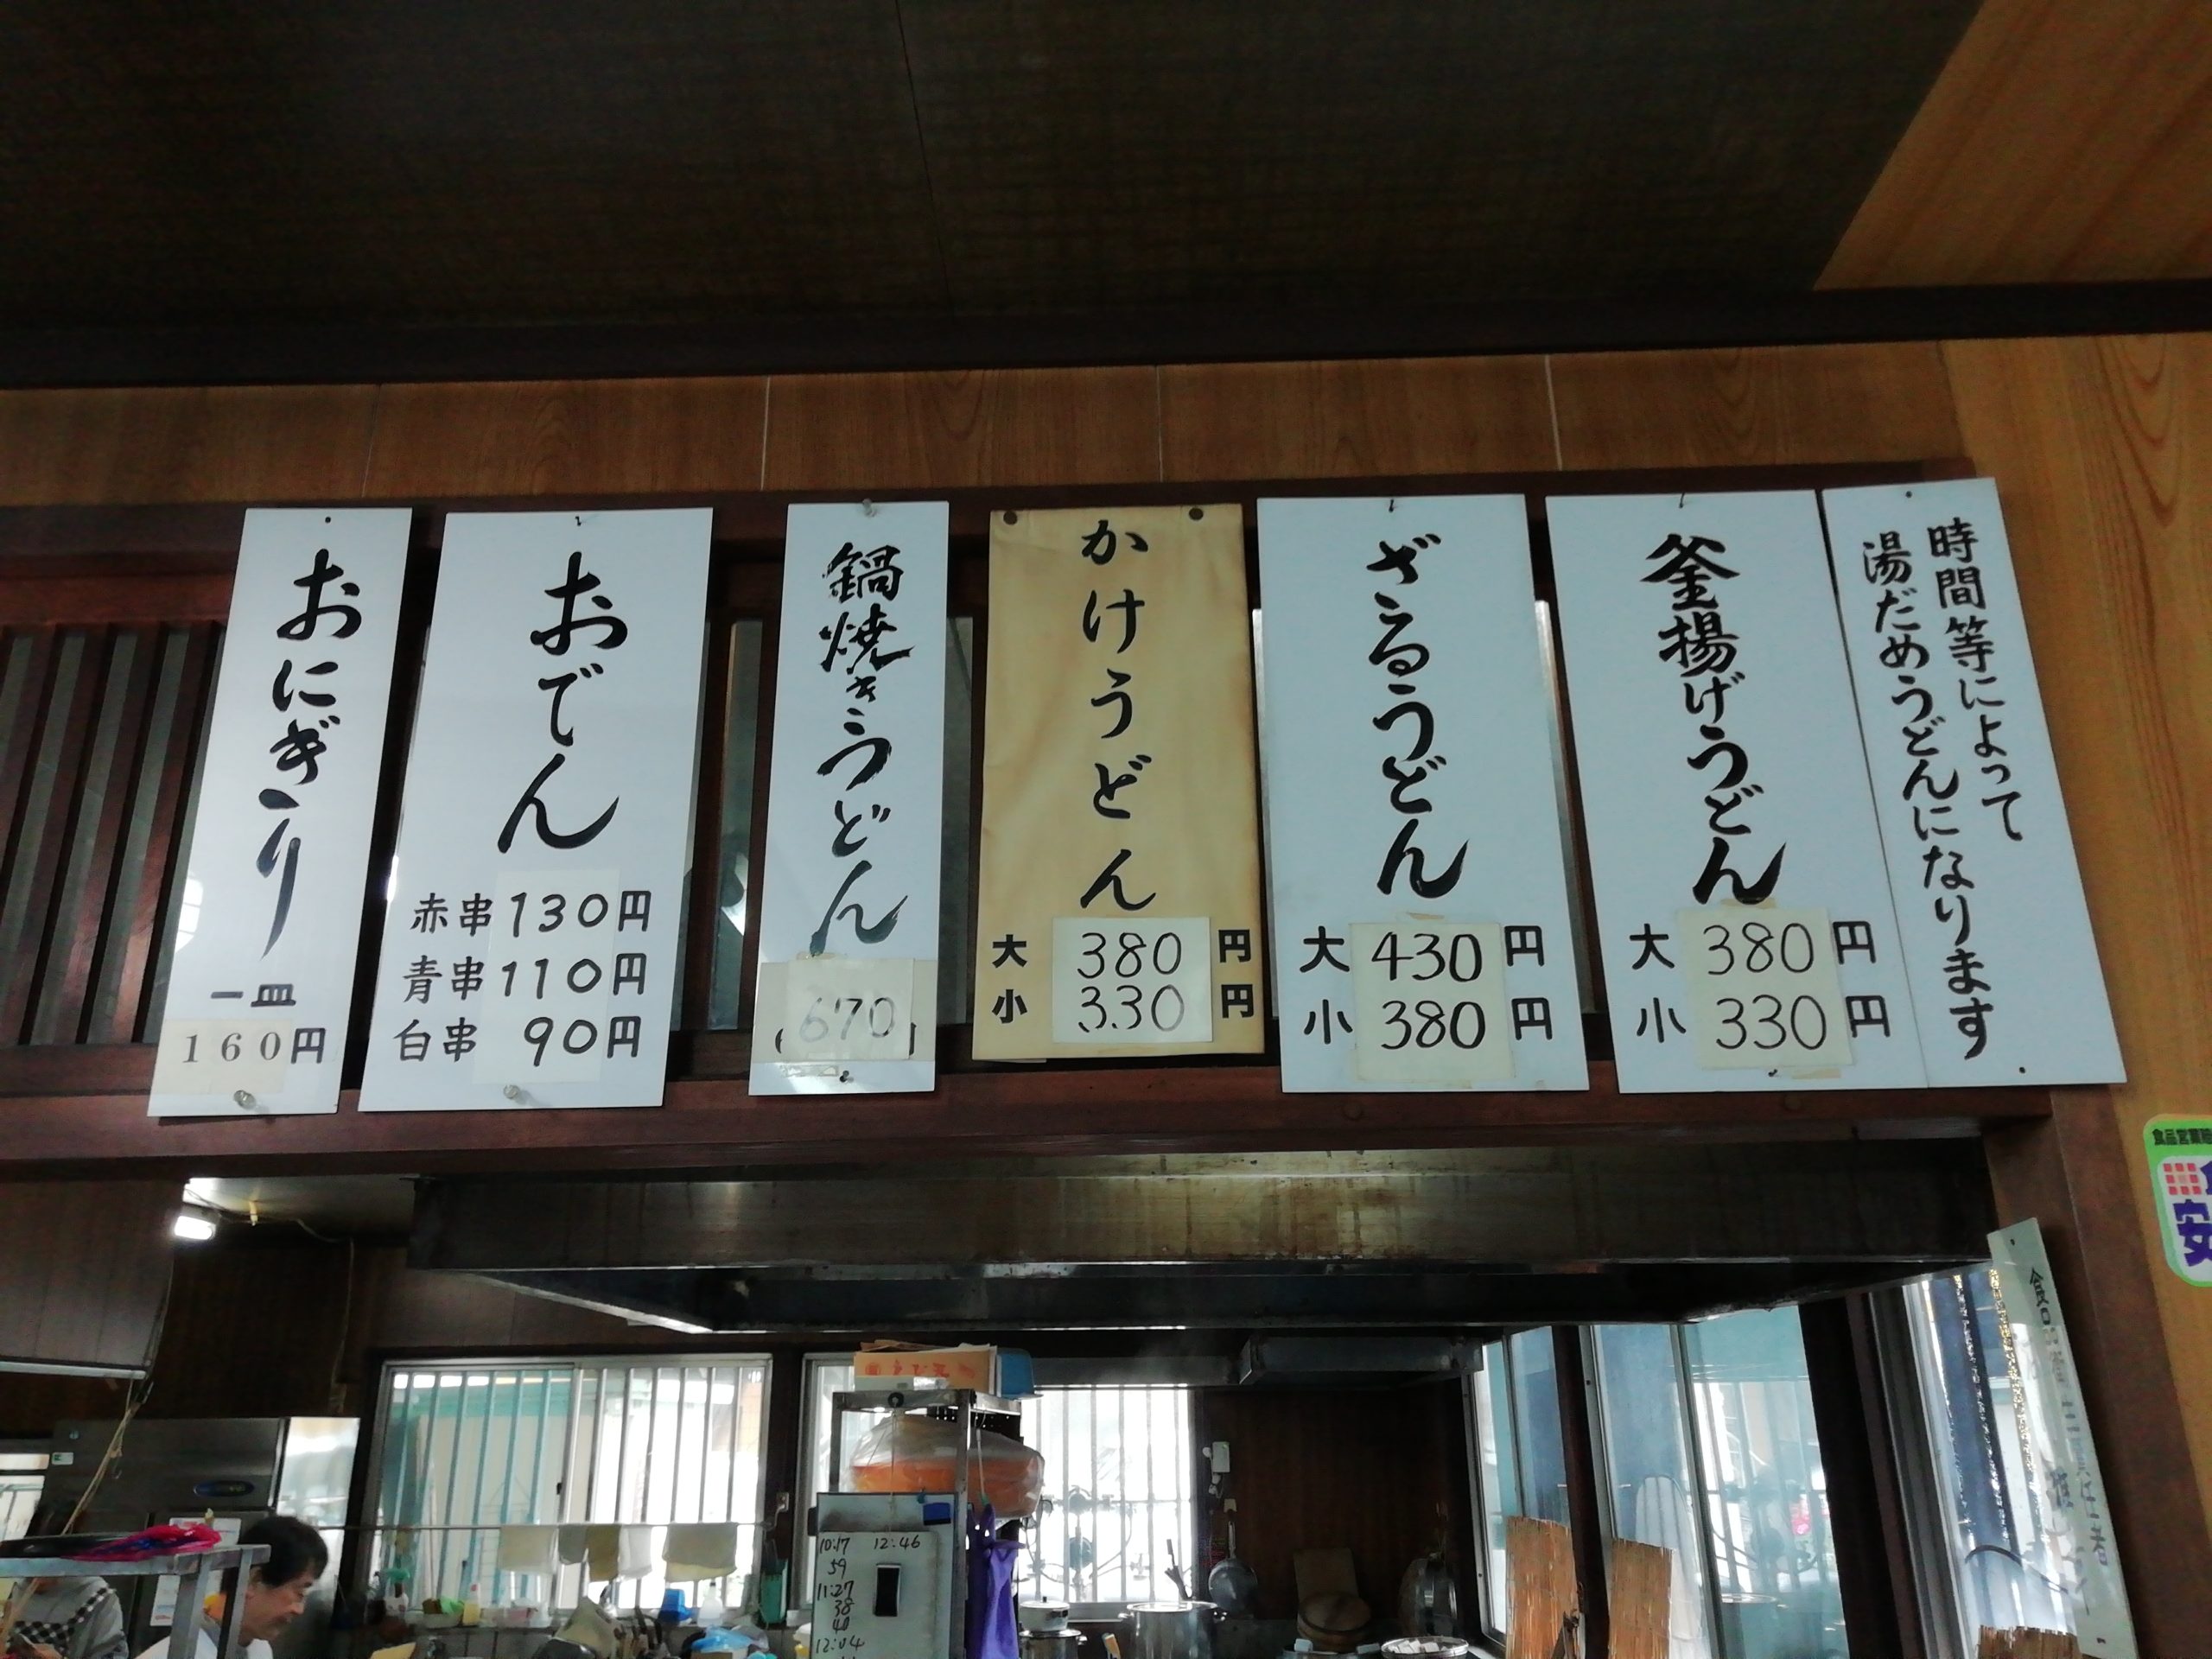 時間等によって
湯だめうどんになります
釜揚げうどん
大 380 円
小 330 円
ざるうどん
大 430 円
小 380 円
かけうどん
大 380 円
小 330 円
鍋焼きうどん
670
おでん
赤串130円
青串110円
白串 90円
おにぎり
一皿
160円
10:17 12:46
59
11:27
38
40
12:04